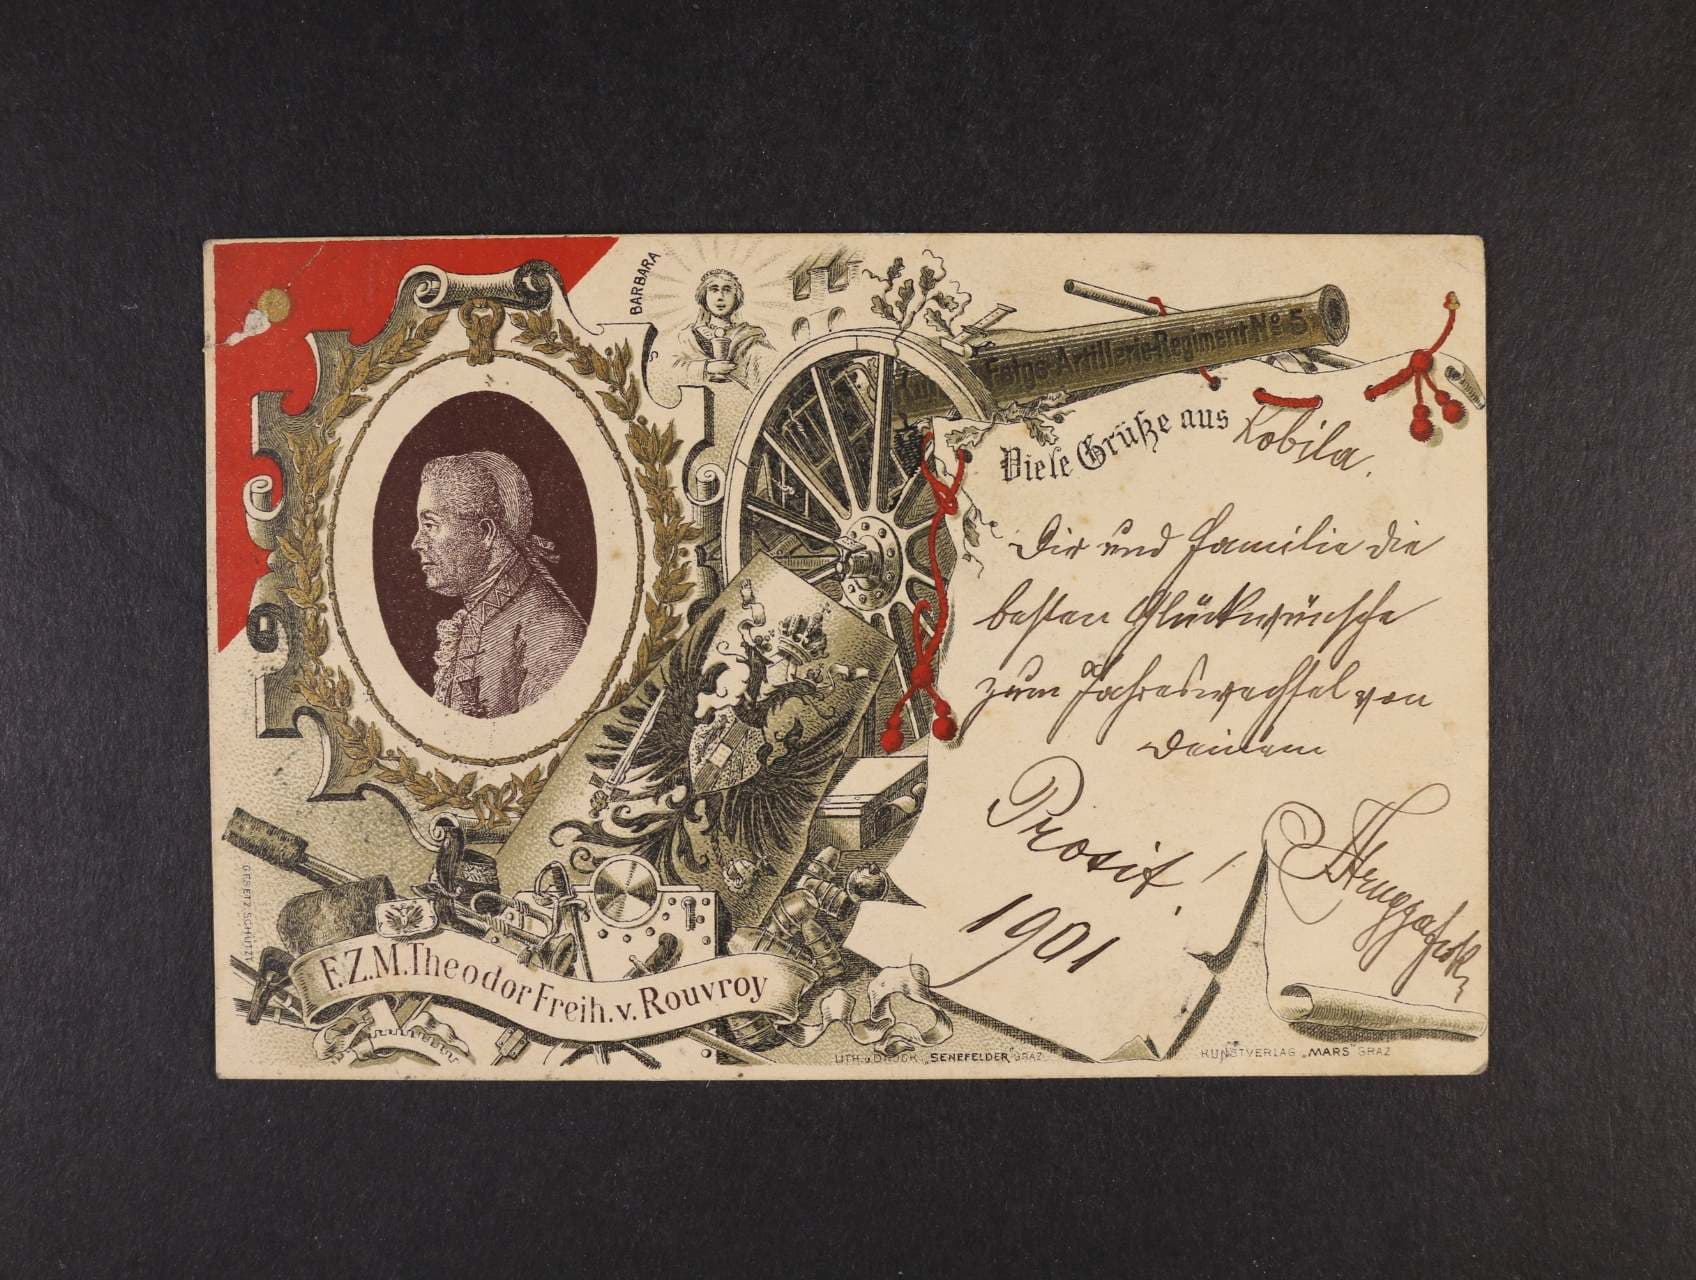 BARBARA
Festgs-Artillerie-Regiment No 5
Viele Grüße aus Kobila.
Dir und Familie die
besten Glückwünsche
zum Jahreswechsel von
Deinem
Prosit!
1901
F.Z.M. Theodor Freih. v. Rouvroy
GESETZ. SCHÜTZT
LITH. u. DRUCK „SENEFELDER" GRAZ
KUNSTVERLAG „MARS" GRAZ